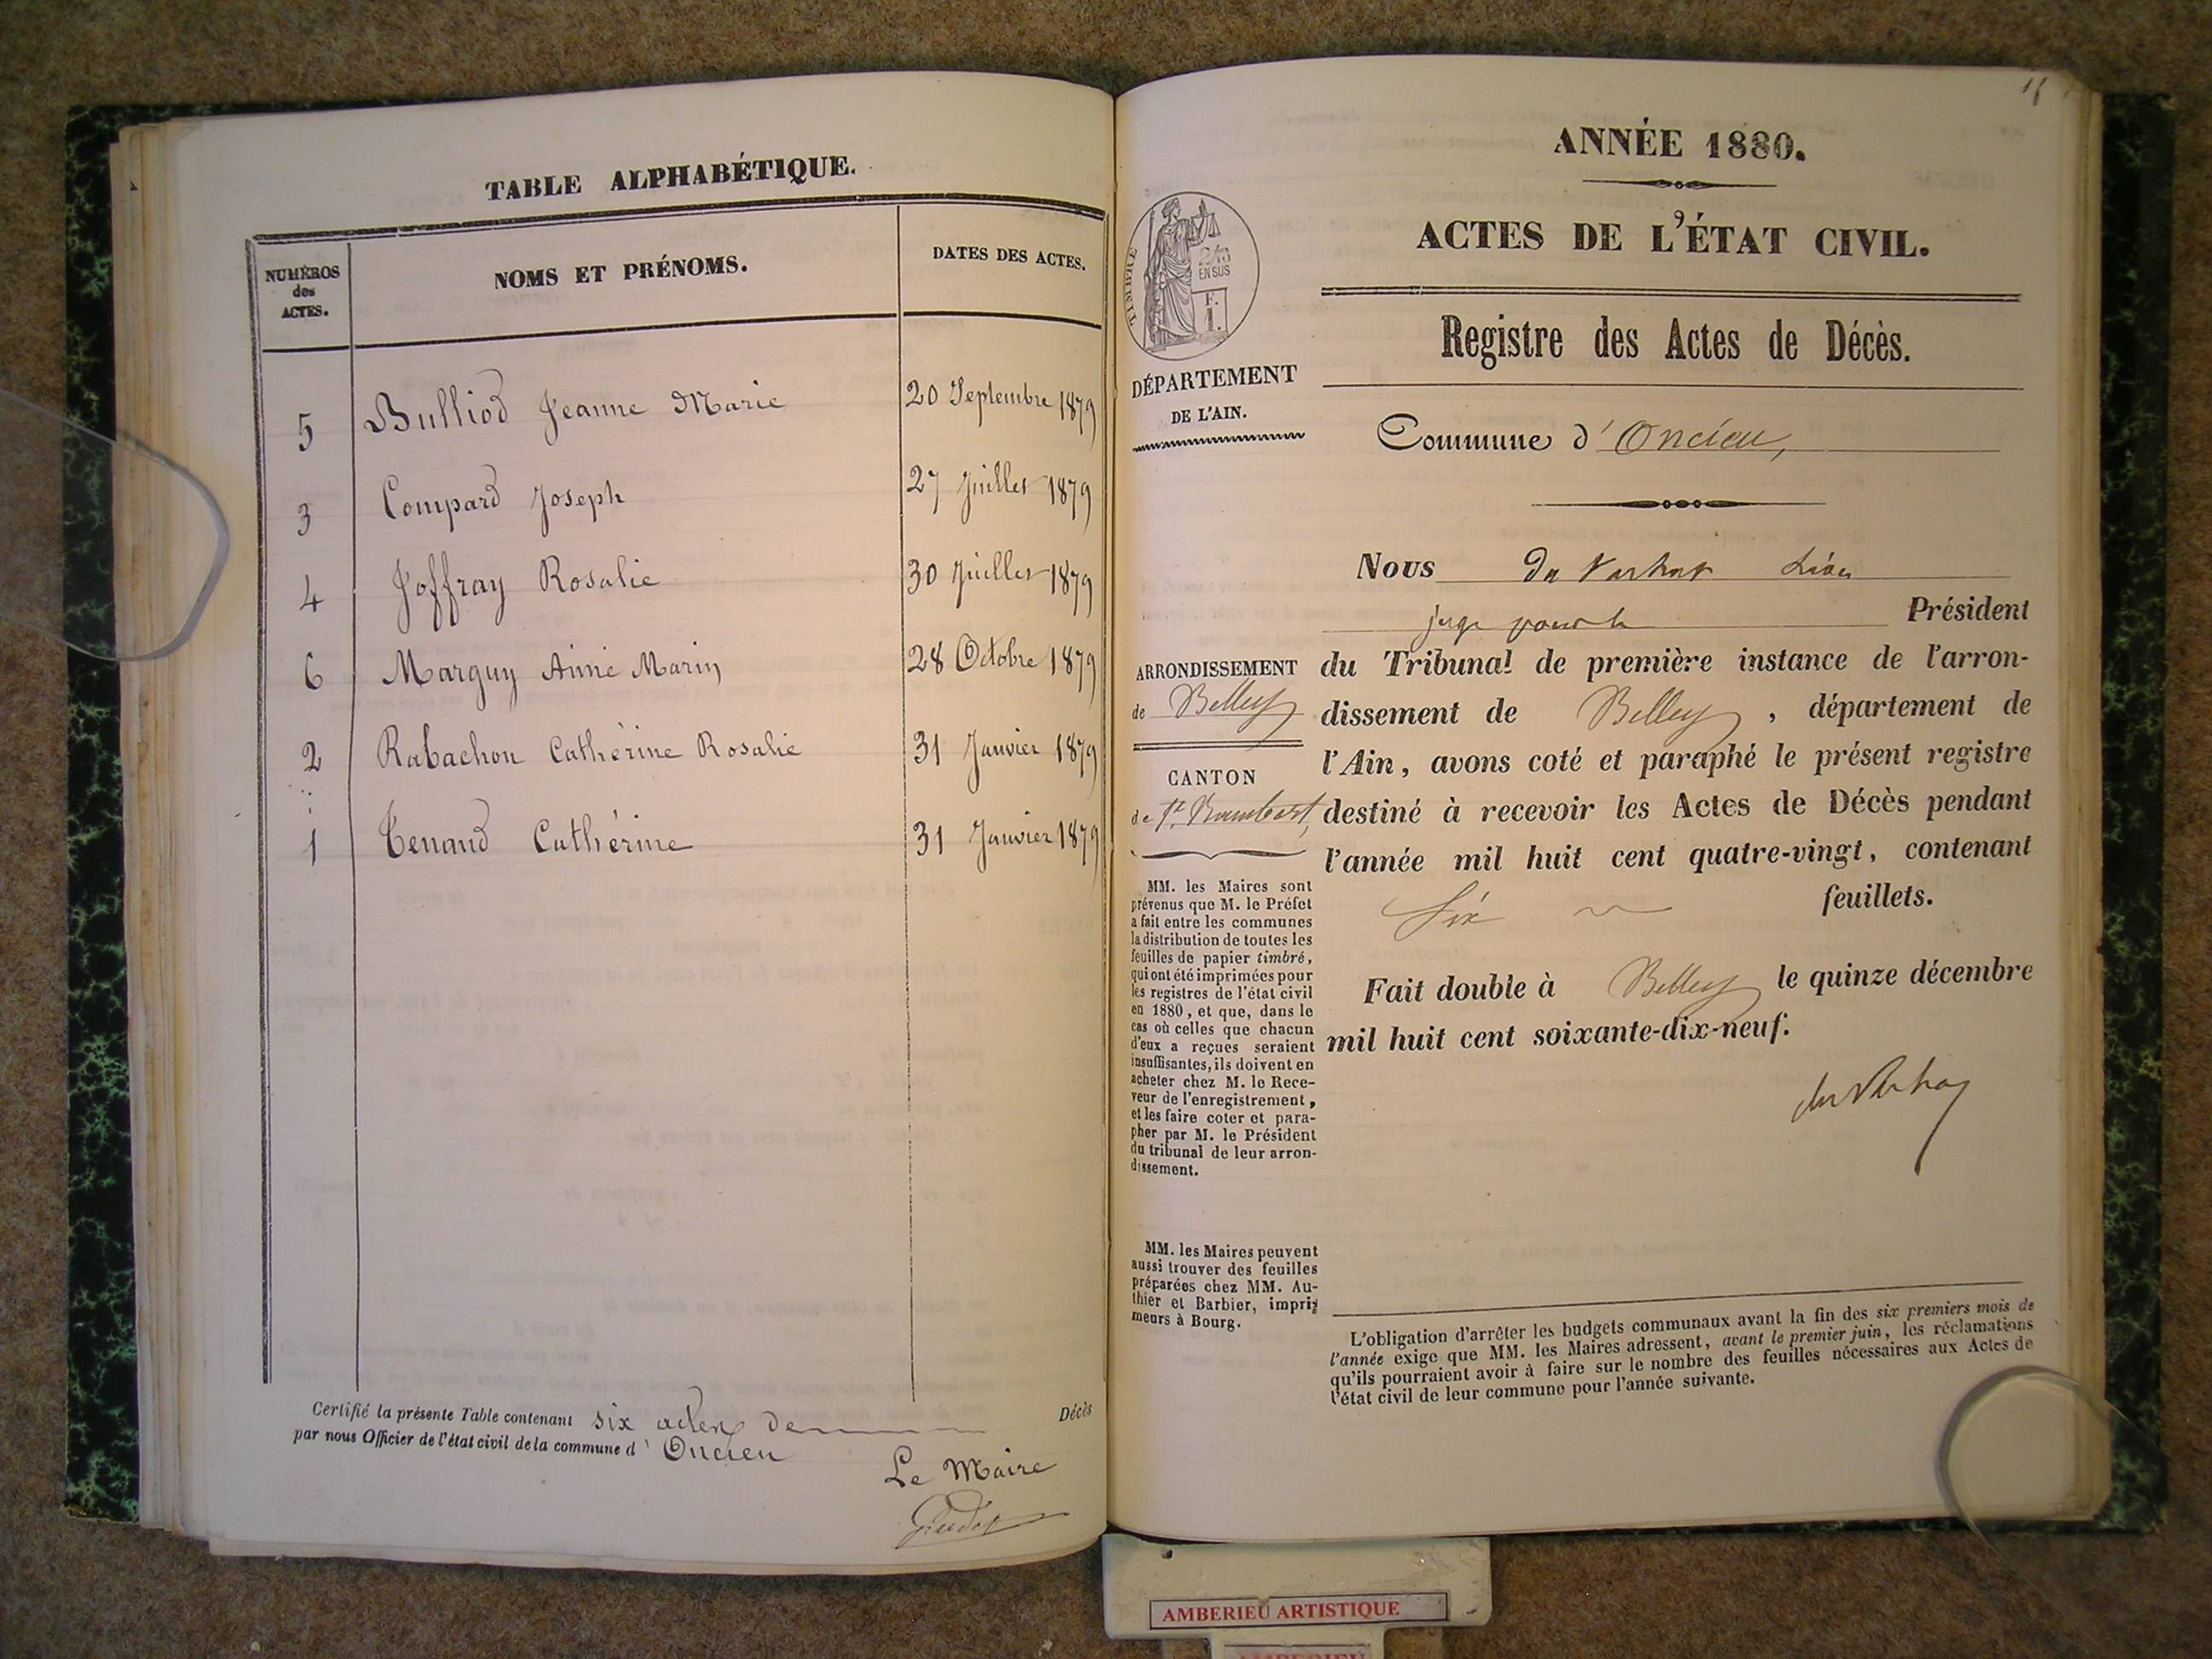 TABLE ALPHABÉTIQUE.
NUMÉROS des ACTES.
NOMS ET PRÉNOMS.
DATES DES ACTES.
5 Bulliod Jeanne Marie 20 Septembre 1879
3 Compard Joseph 27 Juillet 1879
4 Joffray Rosalie 30 Juillet 1879
6 Marguy Aimé Marin 28 Octobre 1879
2 Rabachon Cathérine Rosalie 31 Janvier 1879
1 Tenand Cathérine 31 Janvier 1879
Certifié la présente Table contenant six actes de Décès
par nous Officier de l'état civil de la commune d' Oncieu
Le Maire
ANNÉE 1880.
ACTES DE L'ÉTAT CIVIL.
Registre des Actes de Décès.
Commune d' Oncieu,
TIMBRE
2/10
EN SUS
F.
1.
DÉPARTEMENT
DE L'AIN.
ARRONDISSEMENT
de Belley
CANTON
de St. Rambert,
MM. les Maires sont
prévenus que M. le Préfet
a fait entre les communes
la distribution de toutes les
feuilles de papier timbré,
qui ont été imprimées pour
les registres de l'état civil
en 1880, et que, dans le
cas où celles que chacun
d'eux a reçues seraient
insuffisantes, ils doivent en
acheter chez M. le Rece-
veur de l'enregistrement,
et les faire coter et para-
pher par M. le Président
du tribunal de leur arron-
dissement.
MM. les Maires peuvent
aussi trouver des feuilles
préparées chez MM. Au-
thier et Barbier, impri-
meurs à Bourg.
Nous
juge pour le Président
du Tribunal de première instance de l'arron-
dissement de Belley, département de
l'Ain, avons coté et paraphé le présent registre
destiné à recevoir les Actes de Décès pendant
l'année mil huit cent quatre-vingt, contenant
Six feuillets.
Fait double à Belley le quinze décembre
mil huit cent soixante-dix-neuf.
L'obligation d'arrêter les budgets communaux avant la fin des six premiers mois de
l'année exige que MM. les Maires adressent, avant le premier juin, les réclamations
qu'ils pourraient avoir à faire sur le nombre des feuilles nécessaires aux Actes de
l'état civil de leur commune pour l'année suivante.
AMBERIEU ARTISTIQUE
AMBERIEU